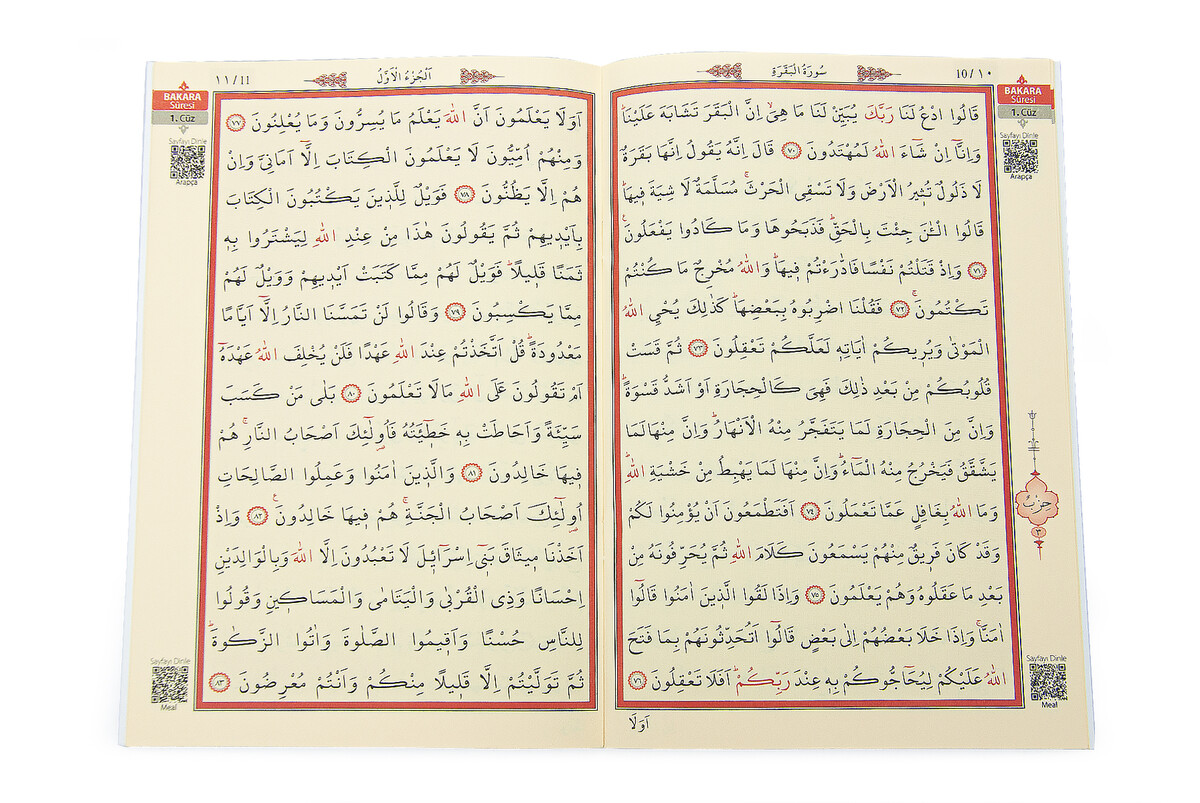 سُورَةُ الْبَقَرَةِ
10/١٠
BAKARA
Sûresi
1. Cüz
Sayfayı Dinle
Arapça
قَالُوا ادْعُ لَنَا رَبَّكَ يُبَيِّنْ لَنَا مَا هِىَۙ اِنَّ الْبَقَرَ تَشَابَهَ عَلَيْنَاۜ
وَاِنَّٓا اِنْ شَٓاءَ اللّٰهُ لَمُهْتَدُونَ ﴿٧٠﴾ قَالَ اِنَّهُ يَقُولُ اِنَّهَا بَقَرَةٌ
لَا ذَلُولٌ تُثِيرُ الْاَرْضَ وَلَا تَسْقِى الْحَرْثَۚ مُسَلَّمَةٌ لَا شِيَةَ فِيهَاۜ
قَالُوا الْـٰٔنَ جِئْتَ بِالْحَقِّۜ فَذَبَحُوهَا وَمَا كَادُوا يَفْعَلُونَ۟
﴿٧١﴾ وَاِذْ قَتَلْتُمْ نَفْسًا فَادّٰرَءْتُمْ فِيهَاۜ وَاللّٰهُ مُخْرِجٌ مَا كُنْتُمْ
تَكْتُمُونَۚ ﴿٧٢﴾ فَقُلْنَا اضْرِبُوهُ بِبَعْضِهَاۜ كَذٰلِكَ يُحْيِى اللّٰهُ
الْمَوْتٰى وَيُرِيكُمْ اٰيَاتِهِ لَعَلَّكُمْ تَعْقِلُونَ ﴿٧٣﴾ ثُمَّ قَسَتْ
قُلُوبُكُمْ مِنْ بَعْدِ ذٰلِكَ فَهِىَ كَالْحِجَارَةِ اَوْ اَشَدُّ قَسْوَةًۜ
وَاِنَّ مِنَ الْحِجَارَةِ لَمَا يَتَفَجَّرُ مِنْهُ الْاَنْهَارُۜ وَاِنَّ مِنْهَا لَمَا
يَشَّقَّقُ فَيَخْرُجُ مِنْهُ الْمَٓاءُۜ وَاِنَّ مِنْهَا لَمَا يَهْبِطُ مِنْ خَشْيَةِ اللّٰهِۜ
وَمَا اللّٰهُ بِغَافِلٍ عَمَّا تَعْمَلُونَ ﴿٧٤﴾ اَفَتَطْمَعُونَ اَنْ يُؤْمِنُوا لَكُمْ
وَقَدْ كَانَ فَرِيقٌ مِنْهُمْ يَسْمَعُونَ كَلَامَ اللّٰهِ ثُمَّ يُحَرِّفُونَهُ مِنْ
بَعْدِ مَا عَقَلُوهُ وَهُمْ يَعْلَمُونَ ﴿٧٥﴾ وَاِذَا لَقُوا الَّذِينَ اٰمَنُوا قَالُٓوا
اٰمَنَّاۚ وَاِذَا خَلَا بَعْضُهُمْ اِلٰى بَعْضٍ قَالُٓوا اَتُحَدِّثُونَهُمْ بِمَا فَتَحَ
اللّٰهُ عَلَيْكُمْ لِيُحَٓاجُّوكُمْ بِهِ عِنْدَ رَبِّكُمْۜ اَفَلَا تَعْقِلُونَ ﴿٧٦﴾
اَوَلَا
حِزْبٌ
٣
Sayfayı Dinle
Meal
اَلْجُزْءُ الْاَوَّلُ
١١/11
BAKARA
Sûresi
1. Cüz
Sayfayı Dinle
Arapça
اَوَلَا يَعْلَمُونَ اَنَّ اللّٰهَ يَعْلَمُ مَا يُسِرُّونَ وَمَا يُعْلِنُونَ ﴿٧٧﴾
وَمِنْهُمْ اُمِّيُّونَ لَا يَعْلَمُونَ الْكِتَابَ اِلَّٓا اَمَانِىَّ وَاِنْ
هُمْ اِلَّا يَظُنُّونَ ﴿٧٨﴾ فَوَيْلٌ لِلَّذِينَ يَكْتُبُونَ الْكِتَابَ
بِاَيْدِيهِمْ ثُمَّ يَقُولُونَ هٰذَا مِنْ عِنْدِ اللّٰهِ لِيَشْتَرُوا بِهِ
ثَمَنًا قَلِيلًاۜ فَوَيْلٌ لَهُمْ مِمَّا كَتَبَتْ اَيْدِيهِمْ وَوَيْلٌ لَهُمْ
مِمَّا يَكْسِبُونَ ﴿٧٩﴾ وَقَالُوا لَنْ تَمَسَّنَا النَّارُ اِلَّٓا اَيَّامًا
مَعْدُودَةًۜ قُلْ اَتَّخَذْتُمْ عِنْدَ اللّٰهِ عَهْدًا فَلَنْ يُخْلِفَ اللّٰهُ عَهْدَهُٓ
اَمْ تَقُولُونَ عَلَى اللّٰهِ مَالَا تَعْلَمُونَ ﴿٨٠﴾ بَلٰى مَنْ كَسَبَ
سَيِّئَةً وَاَحَاطَتْ بِهِ خَطِٓيـَٔتُهُ فَاُو۬لٰٓئِكَ اَصْحَابُ النَّارِۚ هُمْ
فِيهَا خَالِدُونَ ﴿٨١﴾ وَالَّذِينَ اٰمَنُوا وَعَمِلُوا الصَّالِحَاتِ
اُو۬لٰٓئِكَ اَصْحَابُ الْجَنَّةِۚ هُمْ فِيهَا خَالِدُونَ۟ ﴿٨٢﴾ وَاِذْ
اَخَذْنَا مِيثَاقَ بَنِٓى اِسْرَٓائِيلَ لَا تَعْبُدُونَ اِلَّا اللّٰهَ وَبِالْوَالِدَيْنِ
اِحْسَانًا وَذِى الْقُرْبٰى وَالْيَتَامٰى وَالْمَسَاكِينِ وَقُولُوا
لِلنَّاسِ حُسْنًا وَاَقِيمُوا الصَّلٰوةَ وَاٰتُوا الزَّكٰوةَۜ
ثُمَّ تَوَلَّيْتُمْ اِلَّا قَلِيلًا مِنْكُمْ وَاَنْتُمْ مُعْرِضُونَ ﴿٨٣﴾
Sayfayı Dinle
Meal